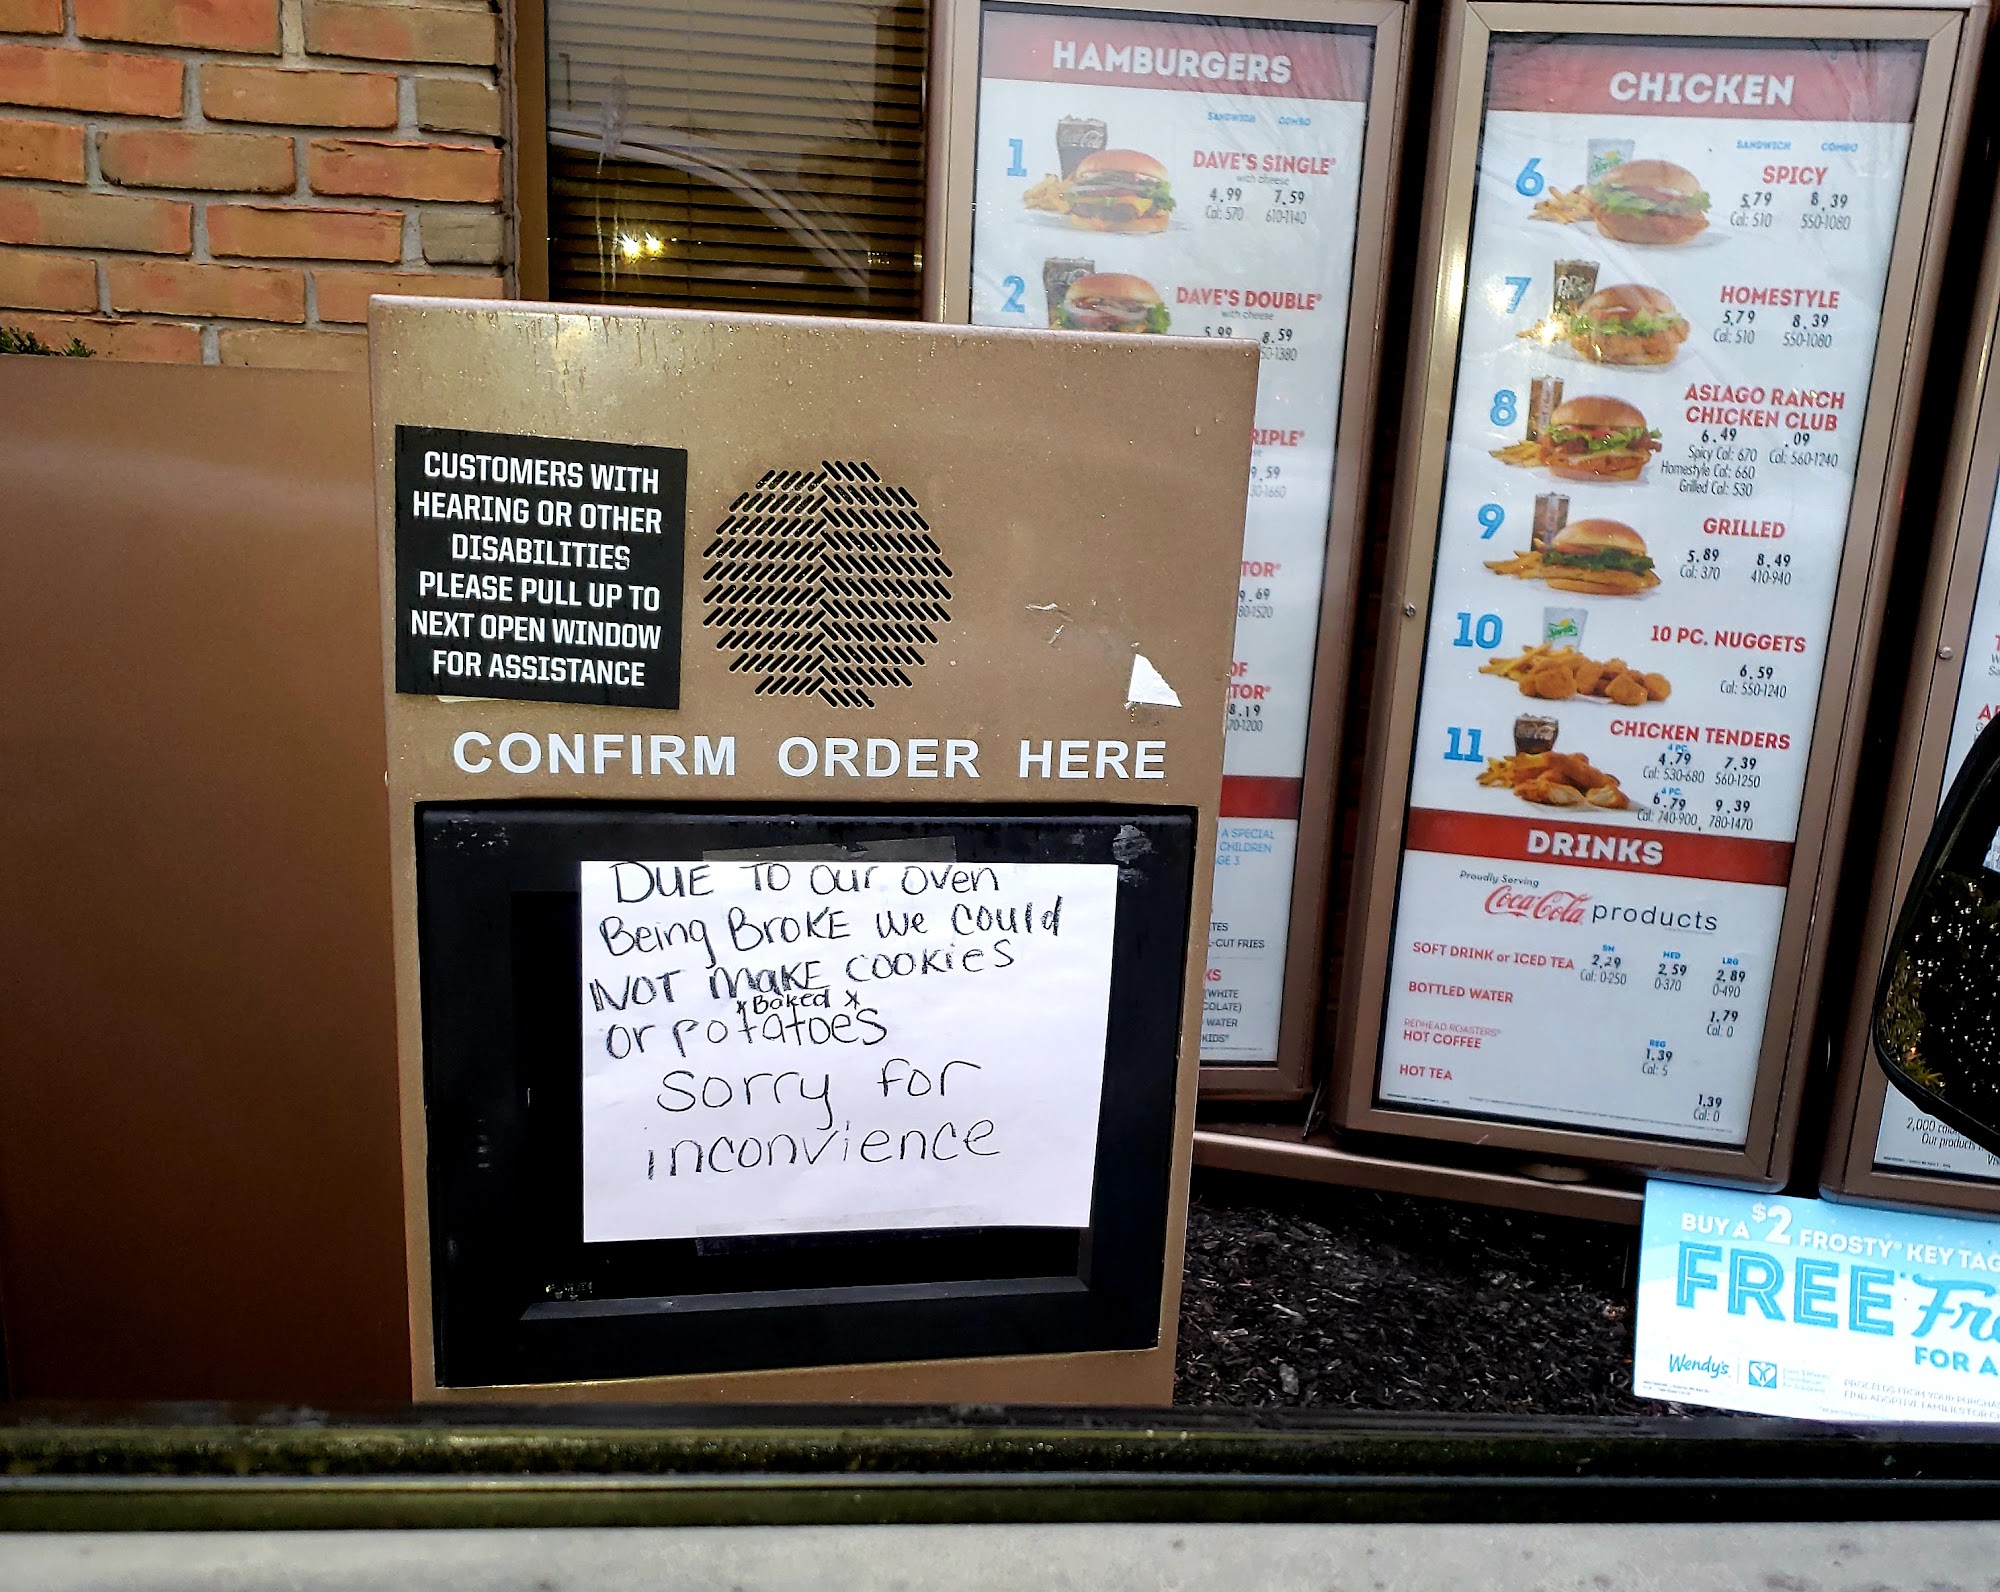 HAMBURGERS
SANDWICH COMBO
1 DAVE'S SINGLE®
with cheese
4.99 7.59
Cal: 570 610-1140
2 DAVE'S DOUBLE®
with cheese
5.99 8.59
50-1380
RIPLE®
9.59
30-1660
TOR®
9.69
80-1520
OF
TOR®
8.19
70-1200
A SPECIAL
CHILDREN
GE 3
TES
-CUT FRIES
KS
(WHITE
COLATE)
WATER
KIDS'
CHICKEN
SANDWICH COMBO
6 SPICY
5.79 8.39
Cal: 510 550-1080
7 HOMESTYLE
5.79 8.39
Cal: 510 550-1080
8 ASIAGO RANCH
CHICKEN CLUB
6.49 .09
Spicy Cal: 670 Cal: 560-1240
Homestyle Cal: 660
Grilled Cal: 530
9 GRILLED
5.89 8.49
Cal: 370 410-940
10 10 PC. NUGGETS
6.59
Cal: 550-1240
11 CHICKEN TENDERS
4 PC.
4.79 7.39
Cal: 530-680 560-1250
6 PC.
6.79 9.39
Cal: 740-900, 780-1470
DRINKS
Proudly Serving
Coca-Cola products
SM MED LRG
SOFT DRINK or ICED TEA 2.29 2.59 2.89
Cal: 0-250 0-370 0-490
BOTTLED WATER 1.79
Cal: 0
REDHEAD ROASTERS®
HOT COFFEE
REG
1.39
Cal: 5
HOT TEA 1.39
Cal: 0
CUSTOMERS WITH
HEARING OR OTHER
DISABILITIES
PLEASE PULL UP TO
NEXT OPEN WINDOW
FOR ASSISTANCE
CONFIRM ORDER HERE
DUE TO our oven
Being BroKE we could
NOT MAKE cookies
*Baked*
or potatoes
sorry for
inconvience
2,000
Our product
BUY A $2 FROSTY® KEY TAG
FREE Fro
FOR A
Wendy's